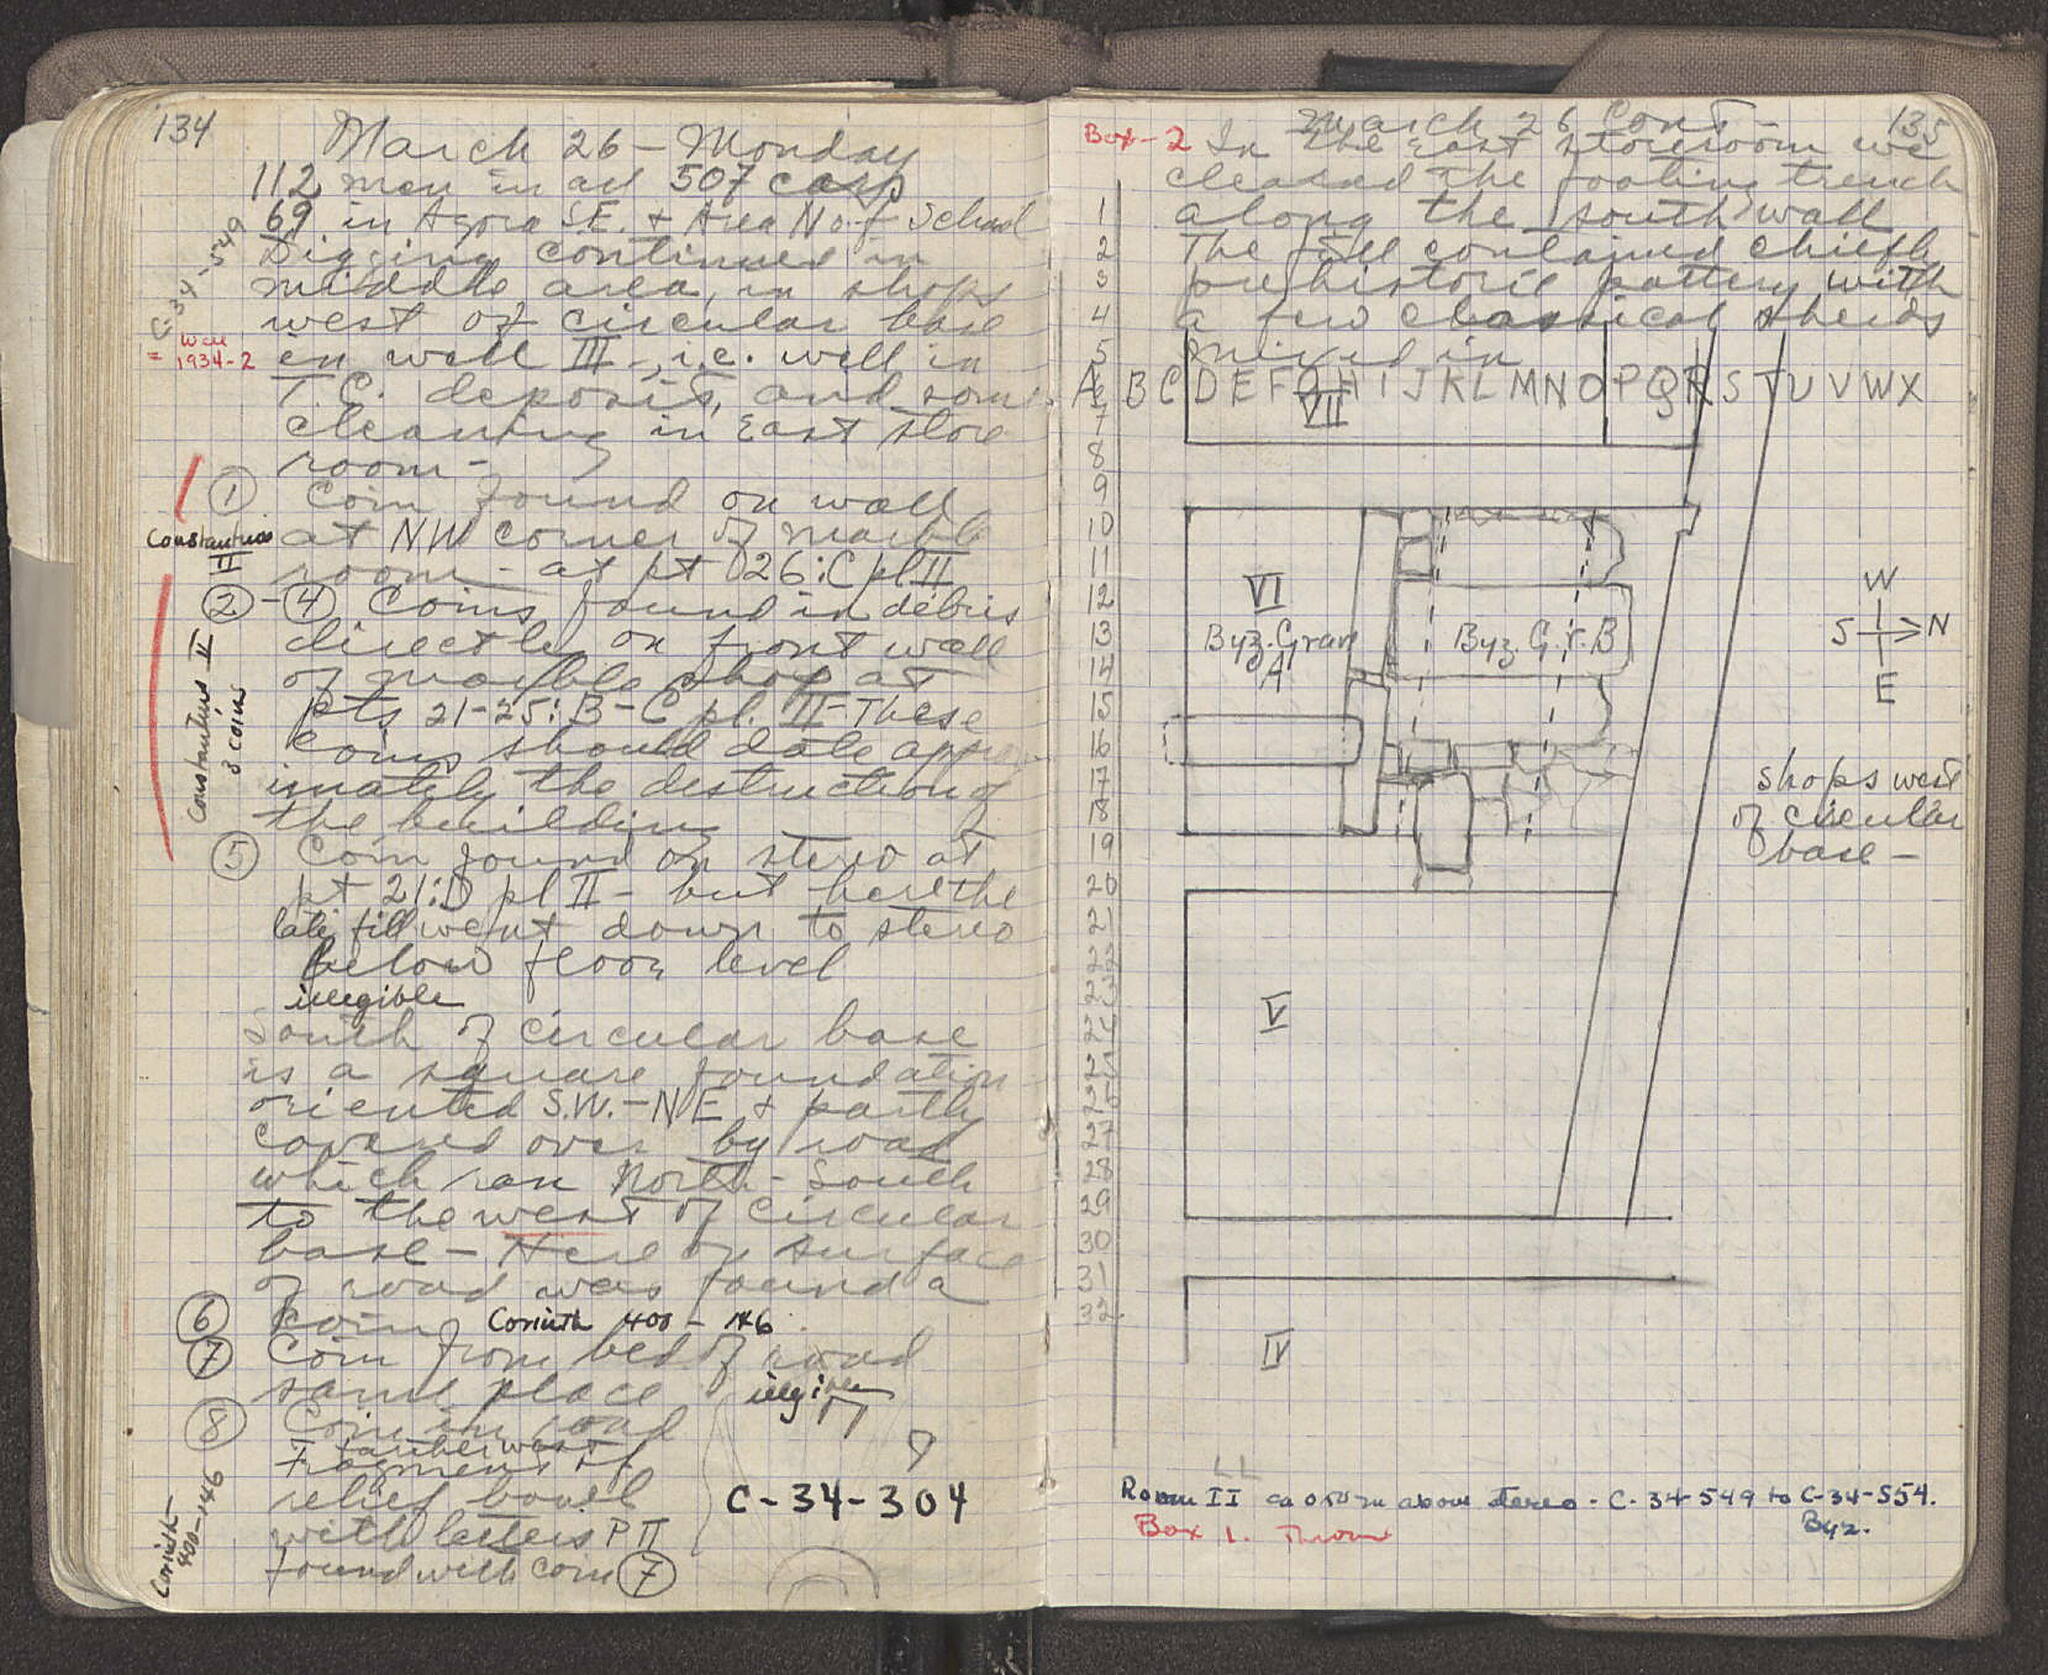 134
March 26 - Monday
112 men in all 507 cars
69 in Agora S.E. + Area No. of School
Digging continued in
middle area, in shops
west of circular base
in well III -, i.e. well in
T.C. deposit, and some
cleaning in East store
room -
C-34-549
= Well
1934-2
① Coin found on wall
at NW corner of marble
room - at pt 26:C pl II
Constantius
II
②-④ Coins found in debris
directly on front wall
of marble shop at
pts 21-25: B-C pl. II - These
coins should date approx
imately the destruction of
the building
Constantius II
3 coins
⑤ Coin found on stereo at
pt 21:D pl II - but here the
late fill went down to stereo
below floor level
illegible
South of circular base
is a square foundation
oriented S.W.-NE + partly
covered over by road
which ran North-South
to the west of circular
base - Here on surface
of road was found a
⑥ Coin Corinth 400-146
⑦ Coin from bed of road
same place illegible
⑧ Coin in road
farther west
Fragment of
relief bowl
with letters P II
found with coin ⑦
Corinth
400-146
C-34-304
March 26 Cont - 135
Box-2 In the East storeroom we
cleared the footing trench
along the south wall
The fill contained chiefly
prehistoric pottery with
a few classical sherds
mixed in
A B C D E F G H I J K L M N O P Q R S T U V W X
1
2
3
4
5
6
7
8
9
10
11
12
13
14
15
16
17
18
19
20
21
22
23
24
25
26
27
28
29
30
31
32
VII
VI
Byz. Grave
A
Byz. Gr. B
W
S N
E
shops west
of circular
base -
V
IV
Room II ca 0.50 m above stereo - C-34-549 to C-34-554.
Byz.
Box 1. Thrown